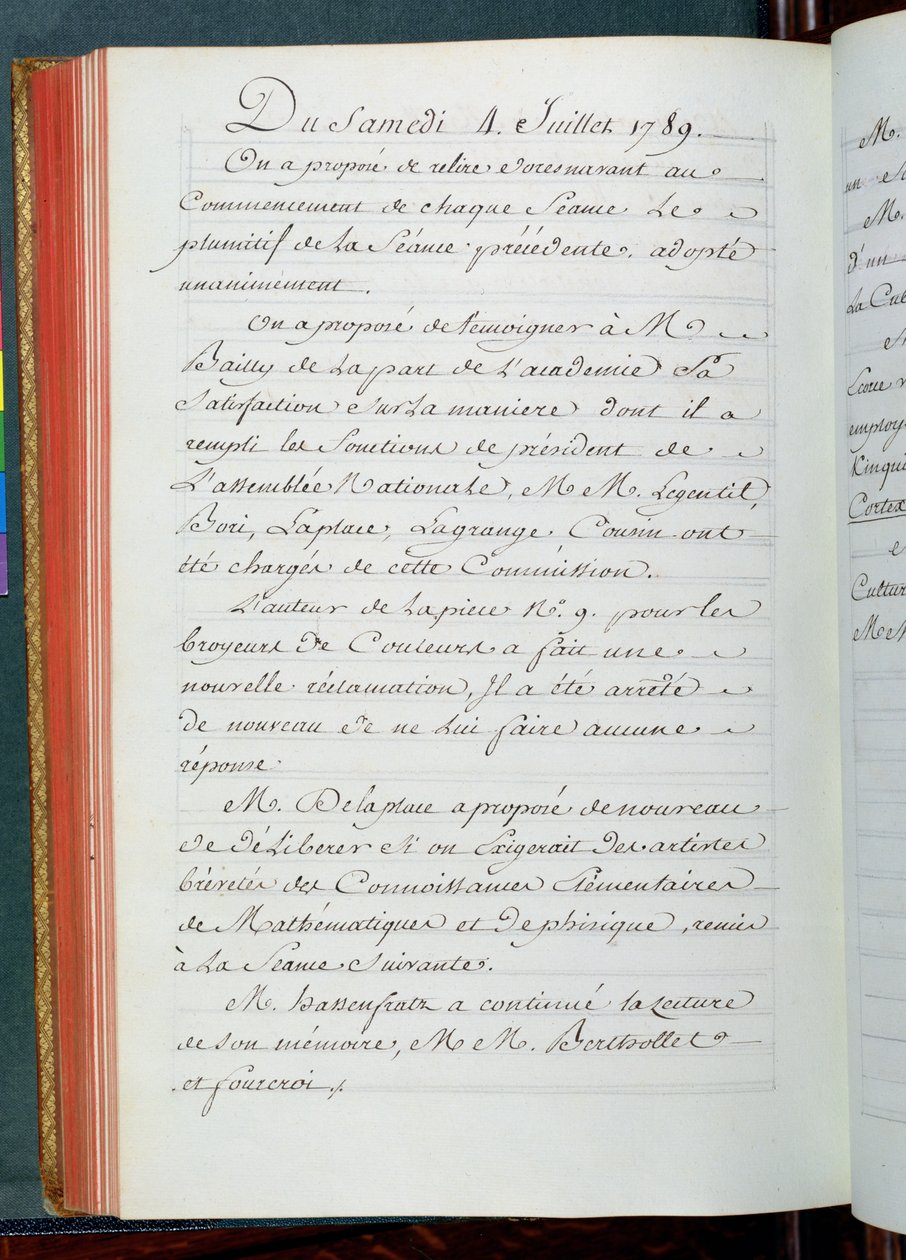 Du Samedi 4. Juillet 1789.
On a proposé de relire doresnavant au
Commencement de chaque Séance Le
plumitif de La Séance précédente. adopté
unanimement.
On a proposé de témoigner à M
Bailly de La part de L'academie Sa
Satisfaction sur La maniere dont il a
rempli les fonctions de président de
L'assemblée Nationale, M M. Legentil,
Bori, Laplace, Lagrange. Cousin ont
été chargés de cette Commission.
L'auteur de La piece N.o 9. pour les
broyeurs de Couleurs a fait une
nouvelle réclamation, Il a été arrêté
de nouveau de ne Lui faire aucune
réponse.
M. De laplace a proposé de nouveau
de déLiberer si on Exigerait des artistes
brévetés des Connoissances Elémentaires
de Mathématiques et de phisique, remis
à La Séance Suivante.
M. hassenfratz a continué la Lecture
de son mémoire, M M. Berthollet
et fourcroi ./.
M.
un
M.
d'un
La Cul
Ecorce
employ
Kinqui
Cortex
Cultur
M M